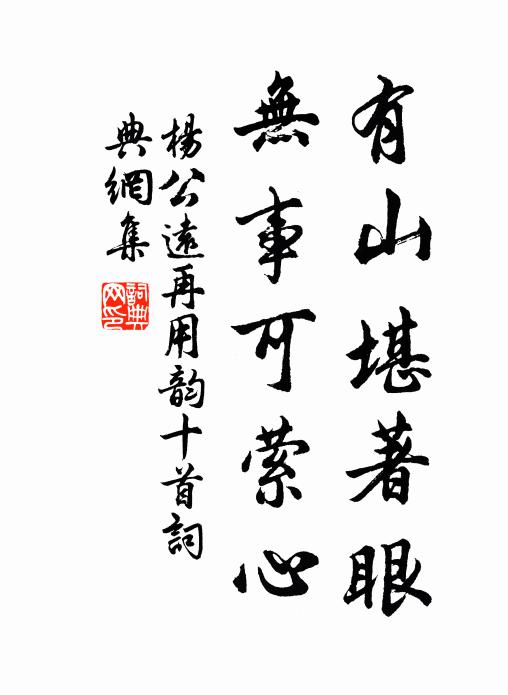 有山堪著眼
無事可縈心
楊公遠再用韵十首詞
典網集
詞典網印